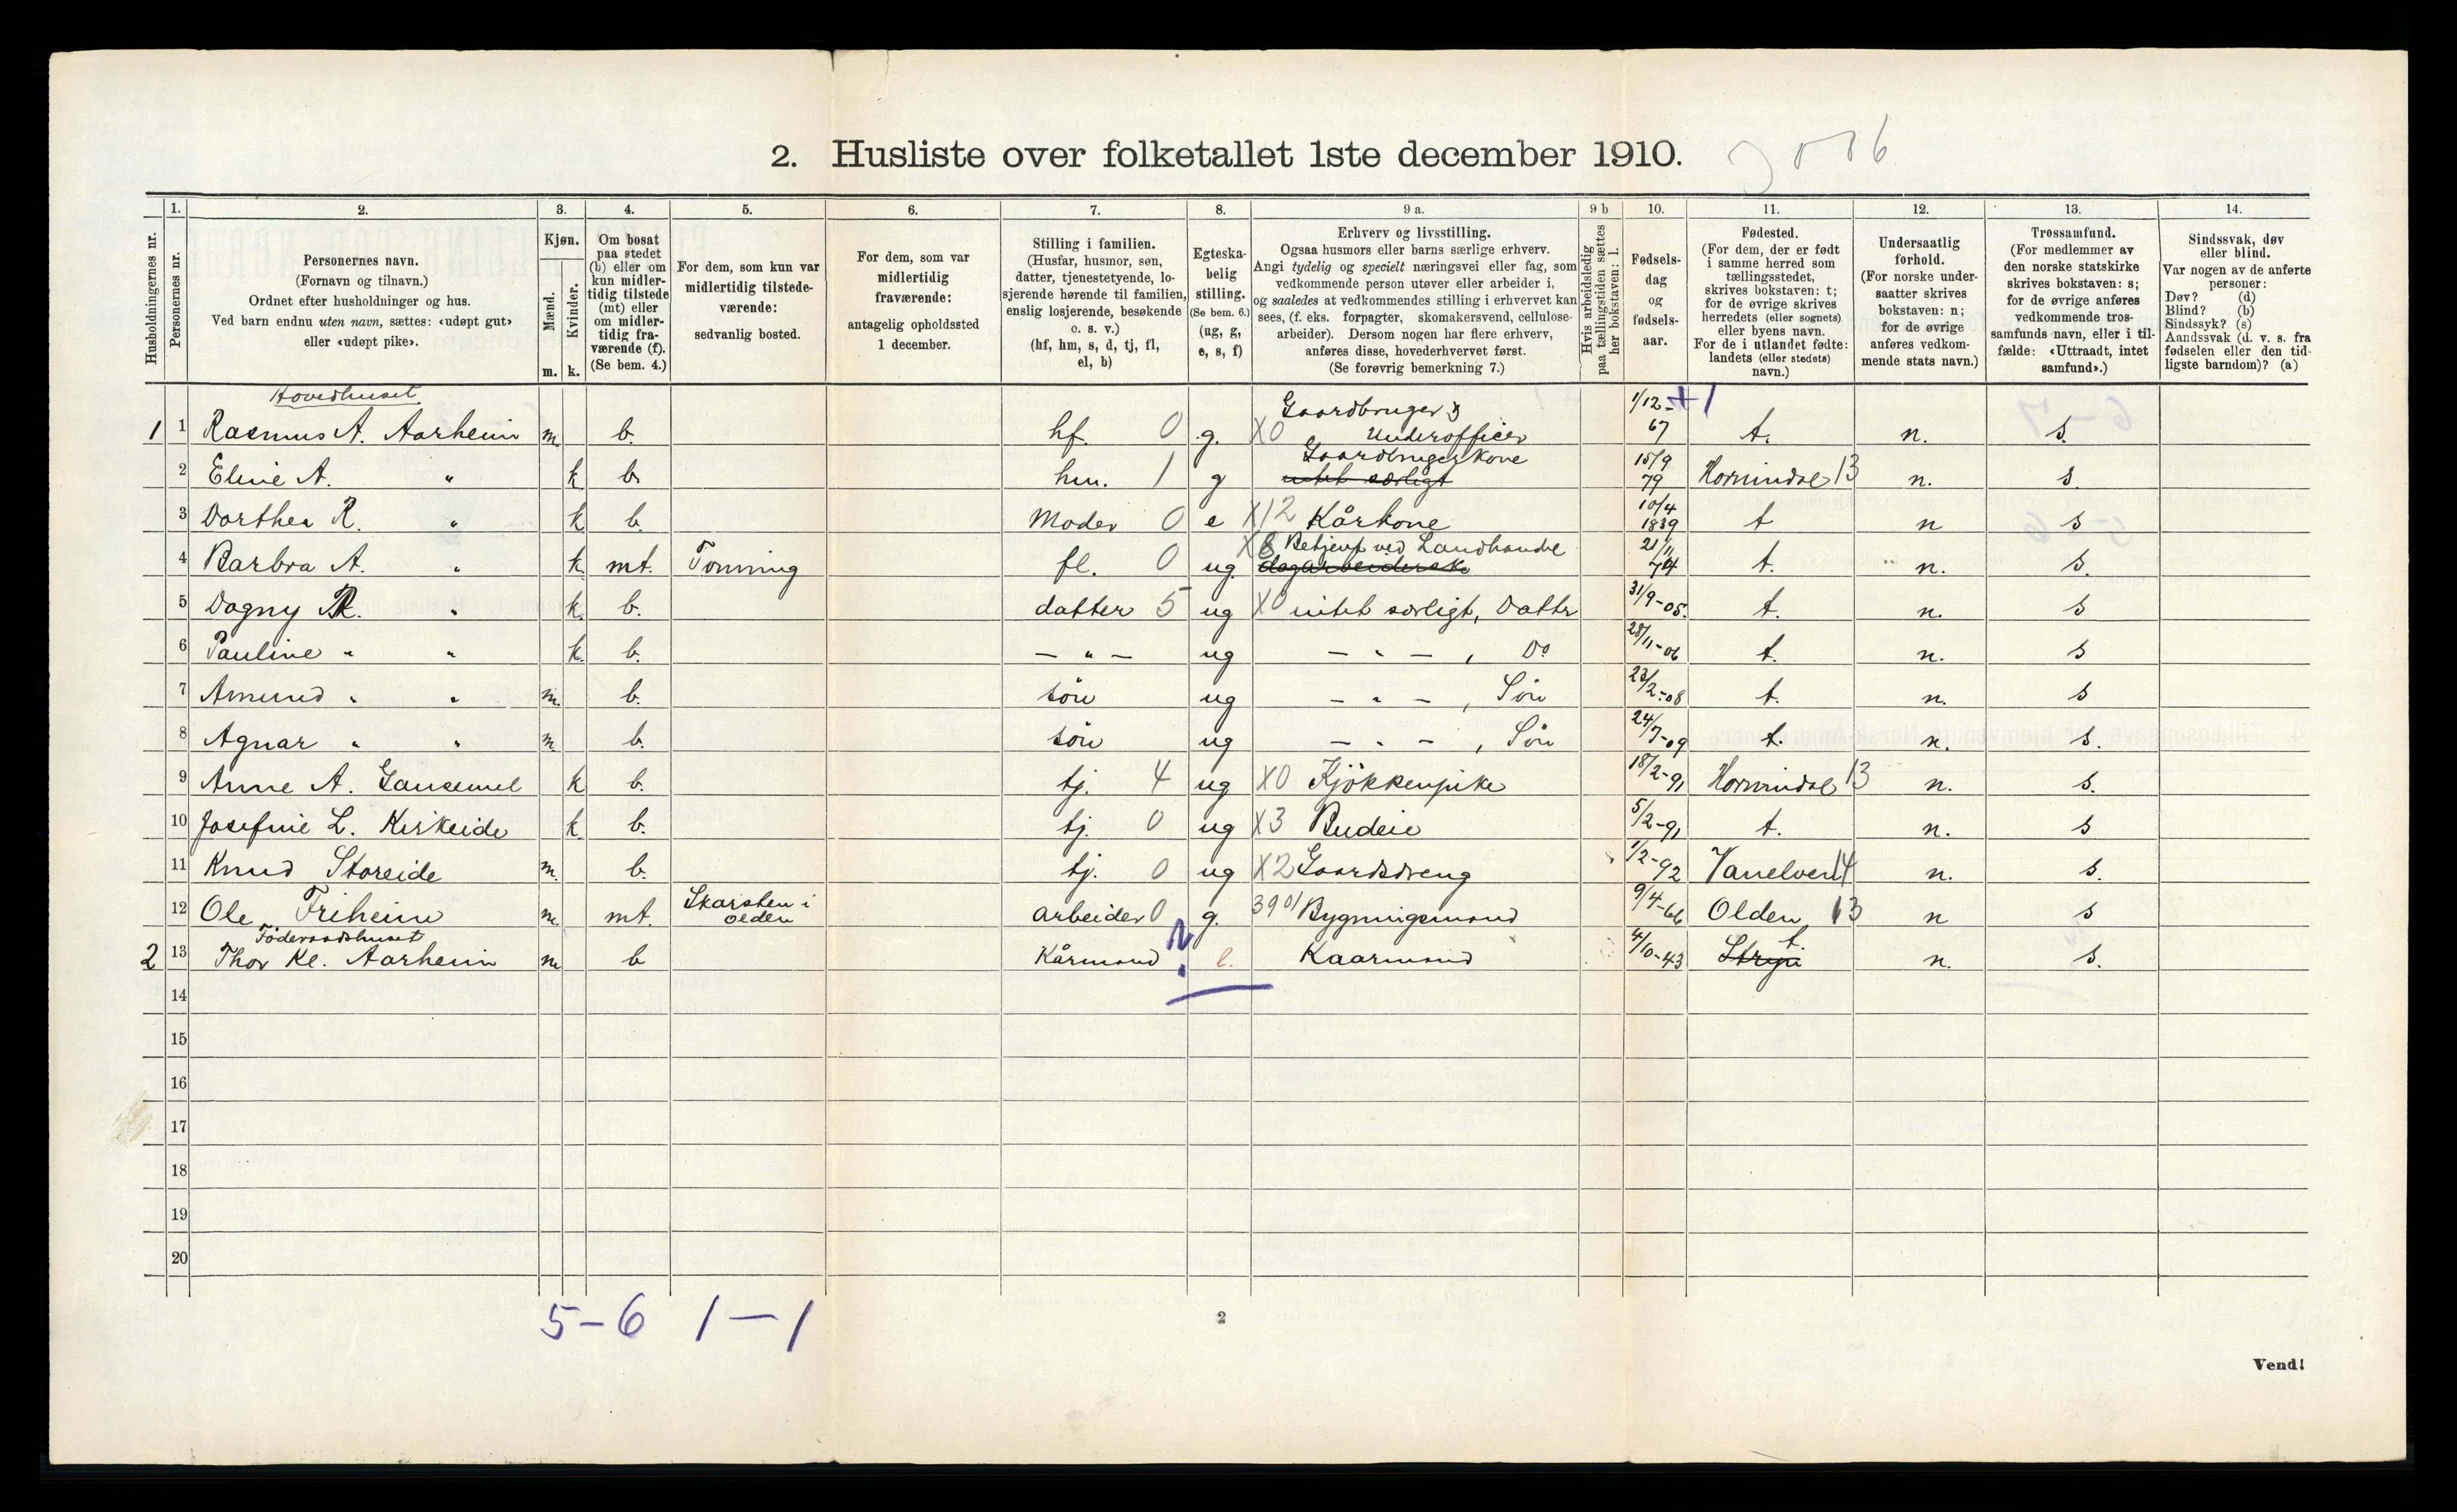 2. Husliste over folketallet 1ste december 1910.
Husholdningernes nr.
1.
Personernes nr.
2.
Personernes navn.
(Fornavn og tilnavn.)
Ordnet efter husholdninger og hus.
Ved barn endnu uten navn, sættes: «udøpt gut»
eller «udøpt pike».
3.
Kjøn.
Mænd.
Kvinder.
m. k.
4.
Om bosat
paa stedet
(b) eller om
kun midler-
tidig tilstede
(mt) eller
om midler-
tidig fra-
værende (f).
(Se bem. 4.)
5.
For dem, som kun var
midlertidig tilstede-
værende:
sedvanlig bosted.
6.
For dem, som var
midlertidig
fraværende:
antagelig opholdssted
1 december.
7.
Stilling i familien.
(Husfar, husmor, søn,
datter, tjenestetyende, lo-
sjerende hørende til familien,
enslig losjerende, besøkende
o. s. v.)
(hf, hm, s, d, tj, fl,
el, b)
8.
Egteska-
belig
stilling.
(Se bem. 6.)
(ug, g,
e, s, f)
9 a.
Erhverv og livsstilling.
Ogsaa husmors eller barns særlige erhverv.
Angi tydelig og specielt næringsvei eller fag, som
vedkommende person utøver eller arbeider i,
og saaledes at vedkommendes stilling i erhvervet kan
sees, (f. eks. forpagter, skomakersvend, cellulose-
arbeider). Dersom nogen har flere erhverv,
anføres disse, hovederhvervet først.
(Se forøvrig bemerkning 7.)
9 b
Hvis arbeidsledig
paa tællingstiden sættes
her bokstaven: l.
10.
Fødsels-
dag
og
fødsels-
aar.
11.
Fødested.
(For dem, der er født
i samme herred som
tællingsstedet,
skrives bokstaven: t;
for de øvrige skrives
herredets (eller sognets)
eller byens navn.
For de i utlandet fødte:
landets (eller stedets)
navn.)
12.
Undersaatlig
forhold.
(For norske under-
saatter skrives
bokstaven: n;
for de øvrige
anføres vedkom-
mende stats navn.)
13.
Trossamfund.
(For medlemmer av
den norske statskirke
skrives bokstaven: s;
for de øvrige anføres
vedkommende tros-
samfunds navn, eller i til-
fælde: «Uttraadt, intet
samfund».)
14.
Sindssvak, døv
eller blind.
Var nogen av de anførte
personer:
Døv? (d)
Blind? (b)
Sindssyk? (s)
Aandssvak (d. v. s. fra
fødselen eller den tid-
ligste barndom)? (a)
Hovedhuset
1 1 Rasmus A. Aarheim m. b. hf. 0 g. X0 Gaardbruger & Underofficer 1/12-67 +1 t. n. s.
2 Eline A. " k b. hm. 1 g Gaardbrugerkone intet særligt 15/9 79 Hornindal 13 n. s.
3 Dorthea R. " k b. Moder 0 e X12 Kårkone 10/4 1839 t n s
4 Barbra A. " k. mt. Tonning fl. 0 ug. X8 Betjent ved Landhandel 21/11 74 t. n. s.
5 Dagny R. " k. b. datter 5 ug X0 intet særligt, Datter 31/9-05. t. n. s
6 Pauline " " k. b. — " — ug — " — , Do 28/11-06 t. n. s
7 Amund " " m. b. søn ug — " — , Søn 23/2-08 t. n. s
8 Agnar " " m. b. søn ug — " — , Søn 24/7-09 t. n. s.
9 Anne A. Gausemel k b. tj. 4 ug X0 Kjøkkenpike 18/2-91 Hornindal 13 n. s.
10 Josefine L. Kirkeide k. b. tj. 0 ug X3 Budeie 5/2-91 t. n. s
11 Knud Storeide m. b. tj. 0 ug X2 Gaardsdreng 1/2-92 Vanelven 14 n. s.
12 Ole Friheim m. mt. Skarsten i Olden arbeider 0 g. 3901 Bygningsmand 9/4-66 Olden 13 n s
Föderaadshuset
2 13 Thor Kl. Aarheim m b Kårmand ? e. Kaarmand 4/10-43 Stryn t. n. s.
14
15
16
17
18
19
20
5-6 1-1
2
Vend!